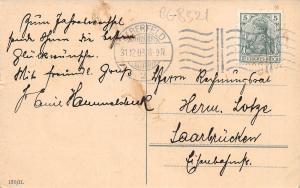 Zum Jahreswechsel
sende Ihnen die besten
Glückwünsche.
Mit freundl. Gruß
Emil Hammelsbeck
ELBERFELD
31.12.
8-9N.
PG8521
5 5
DEUTSCHES REICH
Herrn Rechnungsrat
Herm. Lotze
Saarbrücken
Eisenbahnstr.